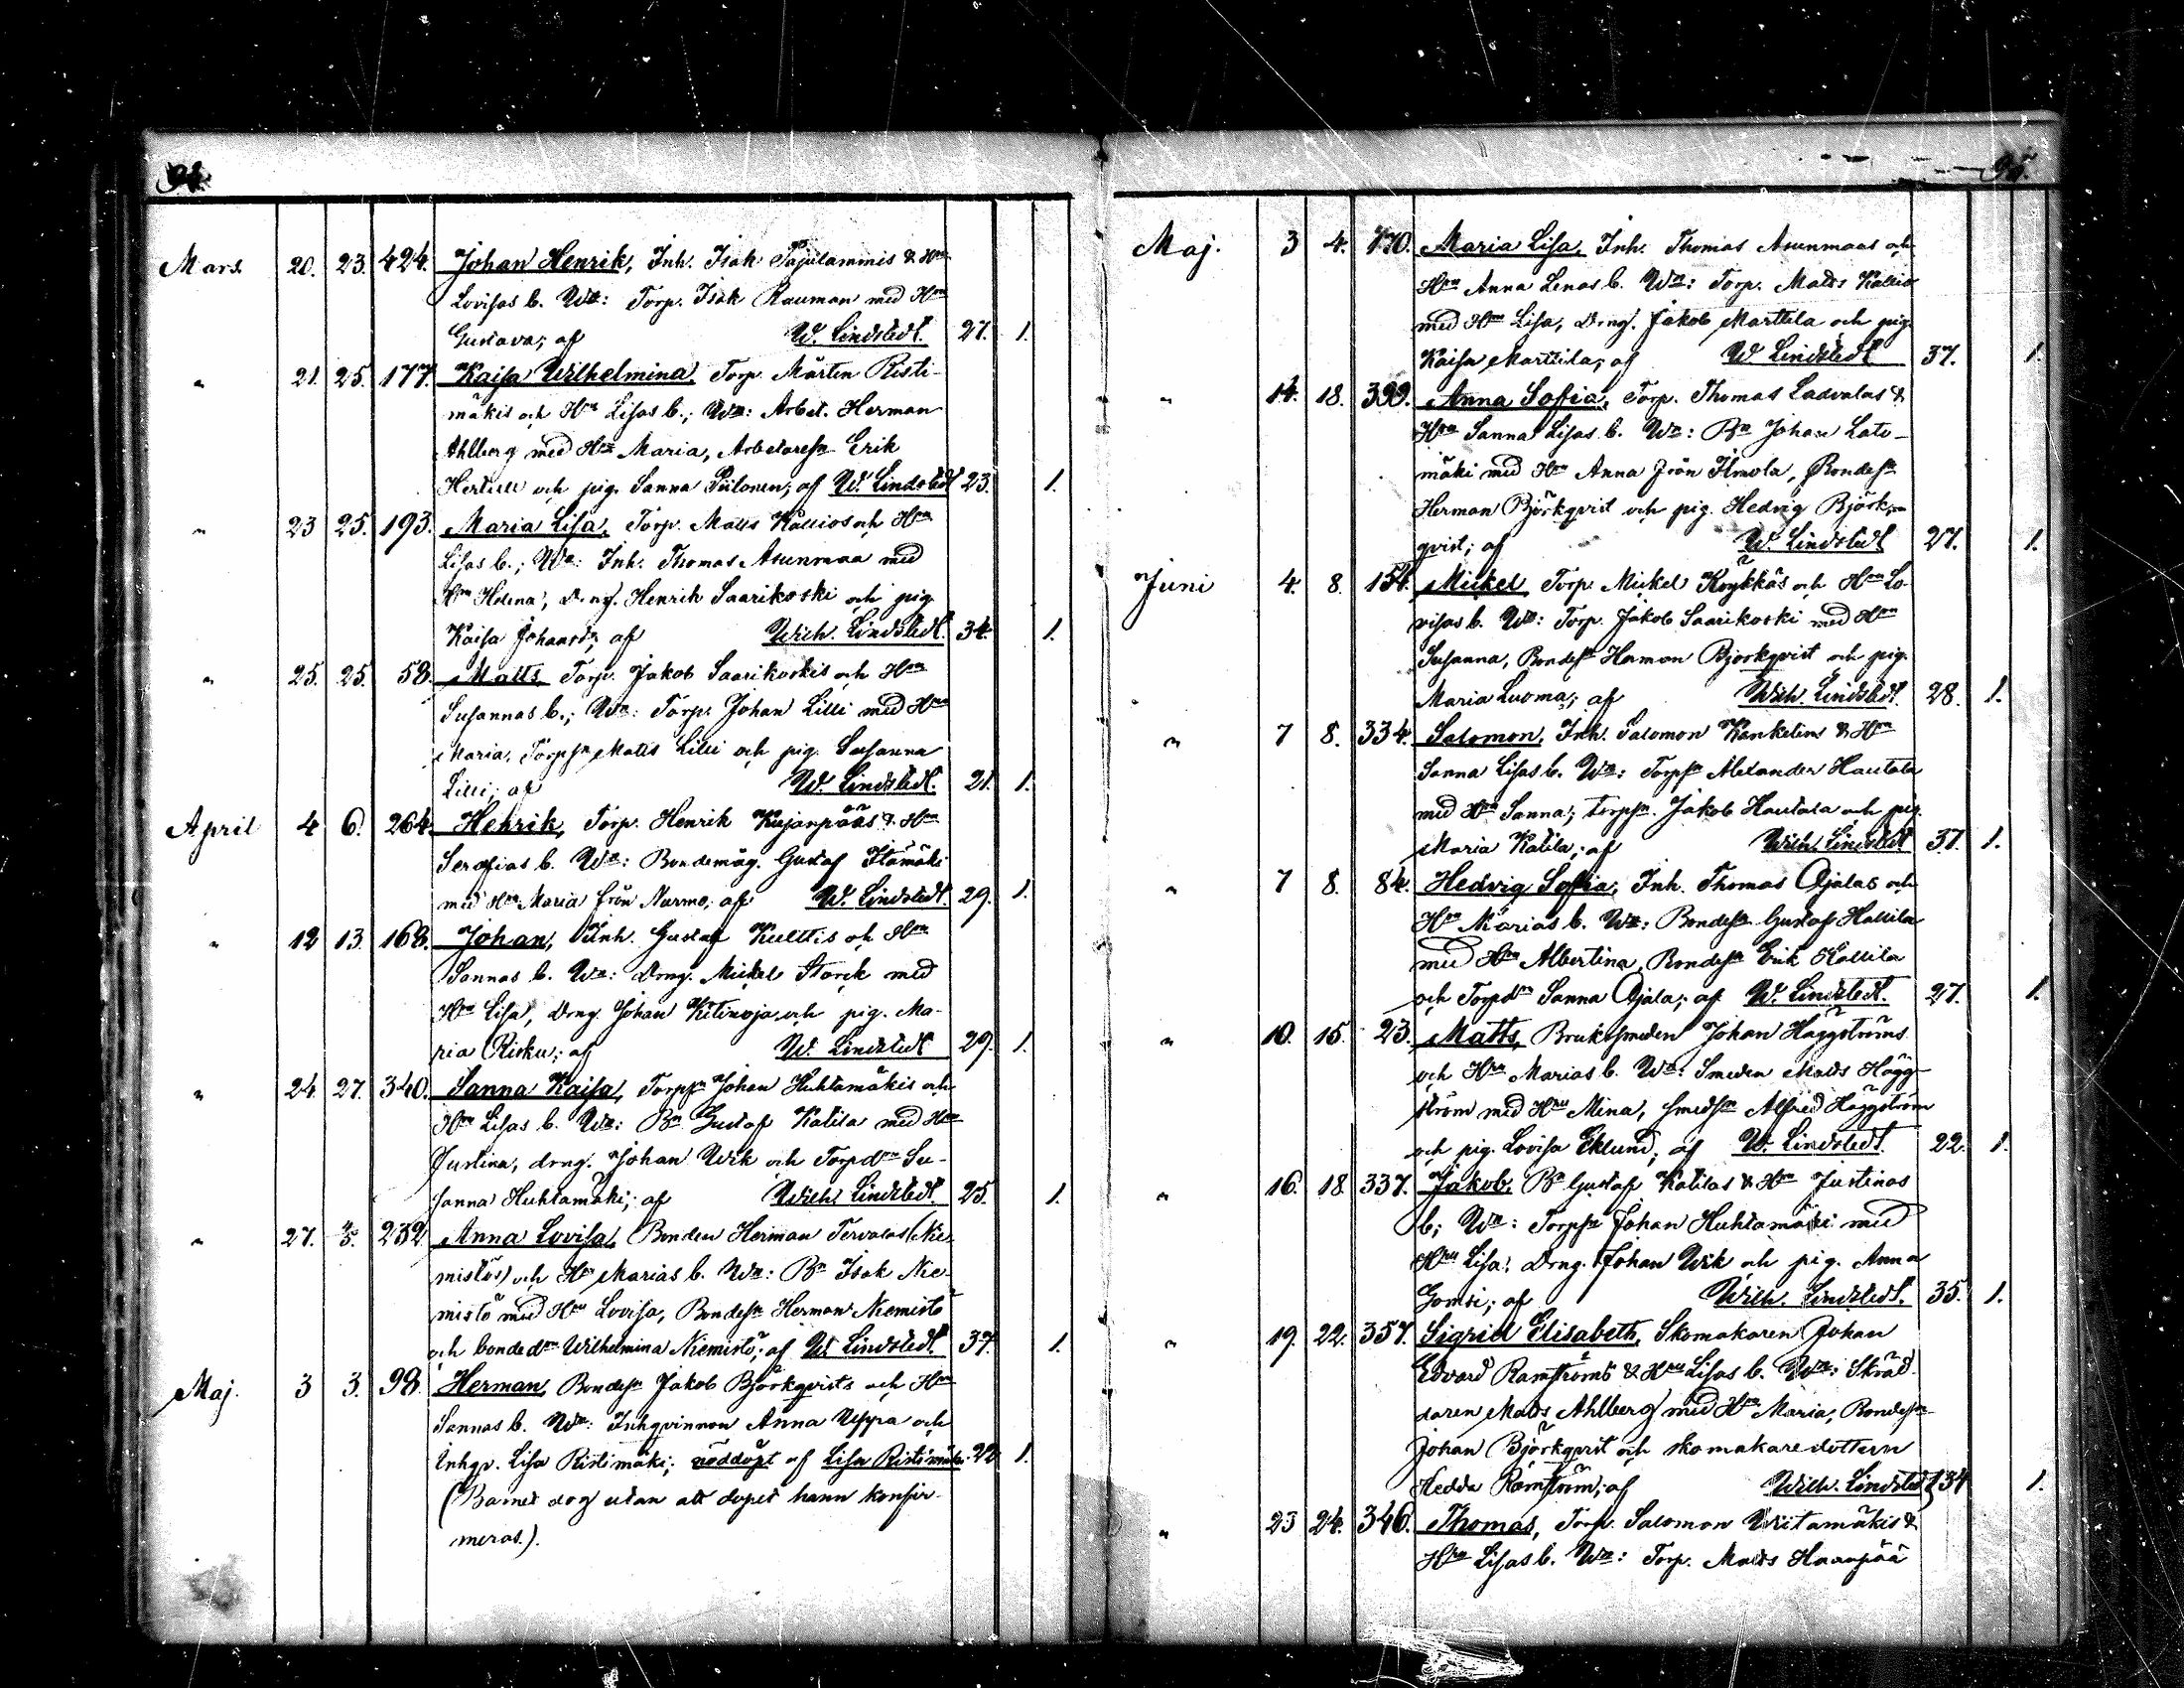 94.
Mars. 20. 23. 424. Johan Henrik, Inh. Isak Pajulammis & Hru
Lovisas b. Wn: Torp. Isak Rauman med Hru
Gustava; af W. Lindstedt. 27. 1.
" 21. 25. 177. Kaisa Wilhelmina, Torp. Mårten Risti-
mäkis och Hru Lisas b.; Wn: Arbet. Herman
Ahlberg med Hru Maria, Arbetaresn Erik
och pig. Sanna Piilonen; af W. Lindstedt 23. 1.
" 23 25. 193. Maria Lisa, Torp. Matts Kallios och Hru
Lisas b.; Wn: Inh. Thomas Asunmaa med
Hru Helena, Drng. Henrik Saarikoski och pig.
Kaisa Johansdr, af Wilh. Lindstedt. 34. 1.
" 25. 25. 58. Matts, Torp. Jakob Saarikoskis och Hru
Susannas b.; Wn: Torp. Johan Lilli med Hru
Maria, Torpsn Matts Lilli och pig. Susanna
Lilli; af W. Lindstedt. 21. 1.
April 4 6. 264. Henrik, Torp. Henrik Kujanpääs & Hru
Serafias b. Wn: Bondemåg. Gustaf Itämäki
med Hru Maria från Nurmo; af W. Lindstedt. 29. 1.
" 12 13. 168. Johan, Inh. Gustaf Kulttis och Hru
Sannas b. Wn: Drng. Mickel Storck med
Hru Lisa, Drng. Johan Kitinoja och pig. Ma-
ria Risku; af W. Lindstedt 29. 1.
" 24. 27. 340. Sanna Kaisa, Torpsn Johan Huhtamäkis och
Hru Lisas b. Wn: Bn Gustaf Katila med Hru
Justina, drng. Johan Wik och Torpdn Su-
sanna Huhtamäki; af Wilh. Lindstedt. 25. 1.
" 27. 232. Anna Lovisa, Bonden Herman Tervalas (Nie-
mistös) och Hru Marias b. Wn: Bn Isak Nie-
mistö med Hru Lovisa, Bondesn Herman Niemistö
och bondedn Wilhelmina Niemistö; af W. Lindstedt. 37. 1.
Maj. 3 3. 98. Herman, Bondesn Jakob Björkqvists och Hru
Sannas b. Wn: Inhqvinnon Anna Uppa och
Inhqv. Lisa Ristimäki; nöddöpt af Lisa Ristimäki. 22 1.
(Barnet dog utan att dopet hann konfir-
meras.).
95.
Maj. 3 4. 170. Maria Lisa, Inh. Thomas Asunmaas och
Hru Anna Lenas b. Wn: Torp. Matts Kallio
med Hru Lisa, Drng. Jakob Marttila och pig.
Kaisa Marttila; af W Lindstedt 37. 1.
" 14. 18. 399. Anna Sofia, Torp. Thomas Ladvalas &
Hru Sanna Lisas b. Wn: Bn Johan Lato-
mäki med Hru Anna från Ilmola, Bondesn
Herman Björkqvist och pig. Hedvig Björk-
qvist; af W. Lindstedt 27. 1.
Juni 4. 8. 154. Mickel, Torp. MickelKöykkäs och Hru Lo-
visas b. Wn: Torp. Jakob Saarikoski med Hru
Susanna, Bondesn Herman Björkqvist och pig.
Maria Luoma; af Wilh. Lindstedt. 28. 1.
" 7 8. 334. Salomon, Inh. Salomon Kankelins & Hru
Sanna Lisas b. Wn: Torpsn Alexander Hautala
med Hru Sanna; torpsn. Jakob Hautala och pig.
Maria Katila; af Wilh. Lindstedt 37. 1.
" 7 8. 84. Hedvig Sofia, Inh. Thomas Ojalas och
Hru Marias b. Wn: Bondesn Gustaf Hallila
med Hru Albertina, Bondesn Erik Hallila
och Torpdn Sanna Ojala; af W. Lindstedt. 27. 1.
" 10. 15. 23. Matts, Bruksmeden Johan Häggströms
och Hru Marias b. Wn: Smeden Matts Hägg-
ström med Hru Mina, smedsn Alfred Häggström
och pig. Lovisa Eklund; af W. Lindstedt. 22. 1.
" 16. 18. 337. Jakob, Bn Gustaf Katilas & Hru Justinas
b; Wn: Torpsn Johan Huhtamäki med
Hru Lisa; Drng. Johan Wik och pig. Anna
Gomsi; af Wilh. Lindstedt. 35. 1.
" 19. 22. 357. Sigrid Elisabeth, Skomakaren Johan
Edvard Ramströms & Hru Lisas b. Wn: Skräd-
daren Matts Ahlberg med Hru Maria, Bondesn
Johan Björkqvist och skomakaredottern
Hedda Ramström; af Wilh. Lindstedt 34 1.
" 23 24. 346. Thomas, Torp. Salomon Wiitamäkis &
Hru Lisas b. Wn: Torp. Matts Haanpää